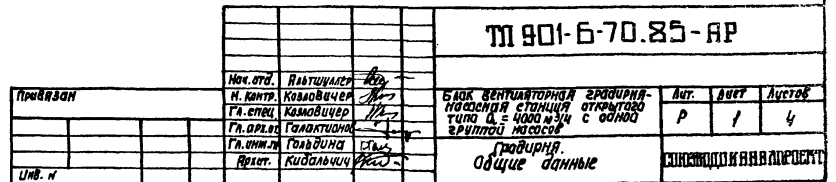 ТП 901-6-70.85-АР
Нач. отд. Альтшуллер
Привязан
Н. контр. Козловичер
Гл. спец Козловичер
Гл. арх. Галактионов
Гл. инж. Гольдина
Архит. Кидальчич
Инв. н
Блок вентиляторная градирня-
насосная станция открытого
типа Q = 4000 м3/ч с одной
группой насосов
Лит. Лист Листов
Р 1 4
Градирня.
Общие данные
СОЮЗВОДОКАНАЛПРОЕКТ